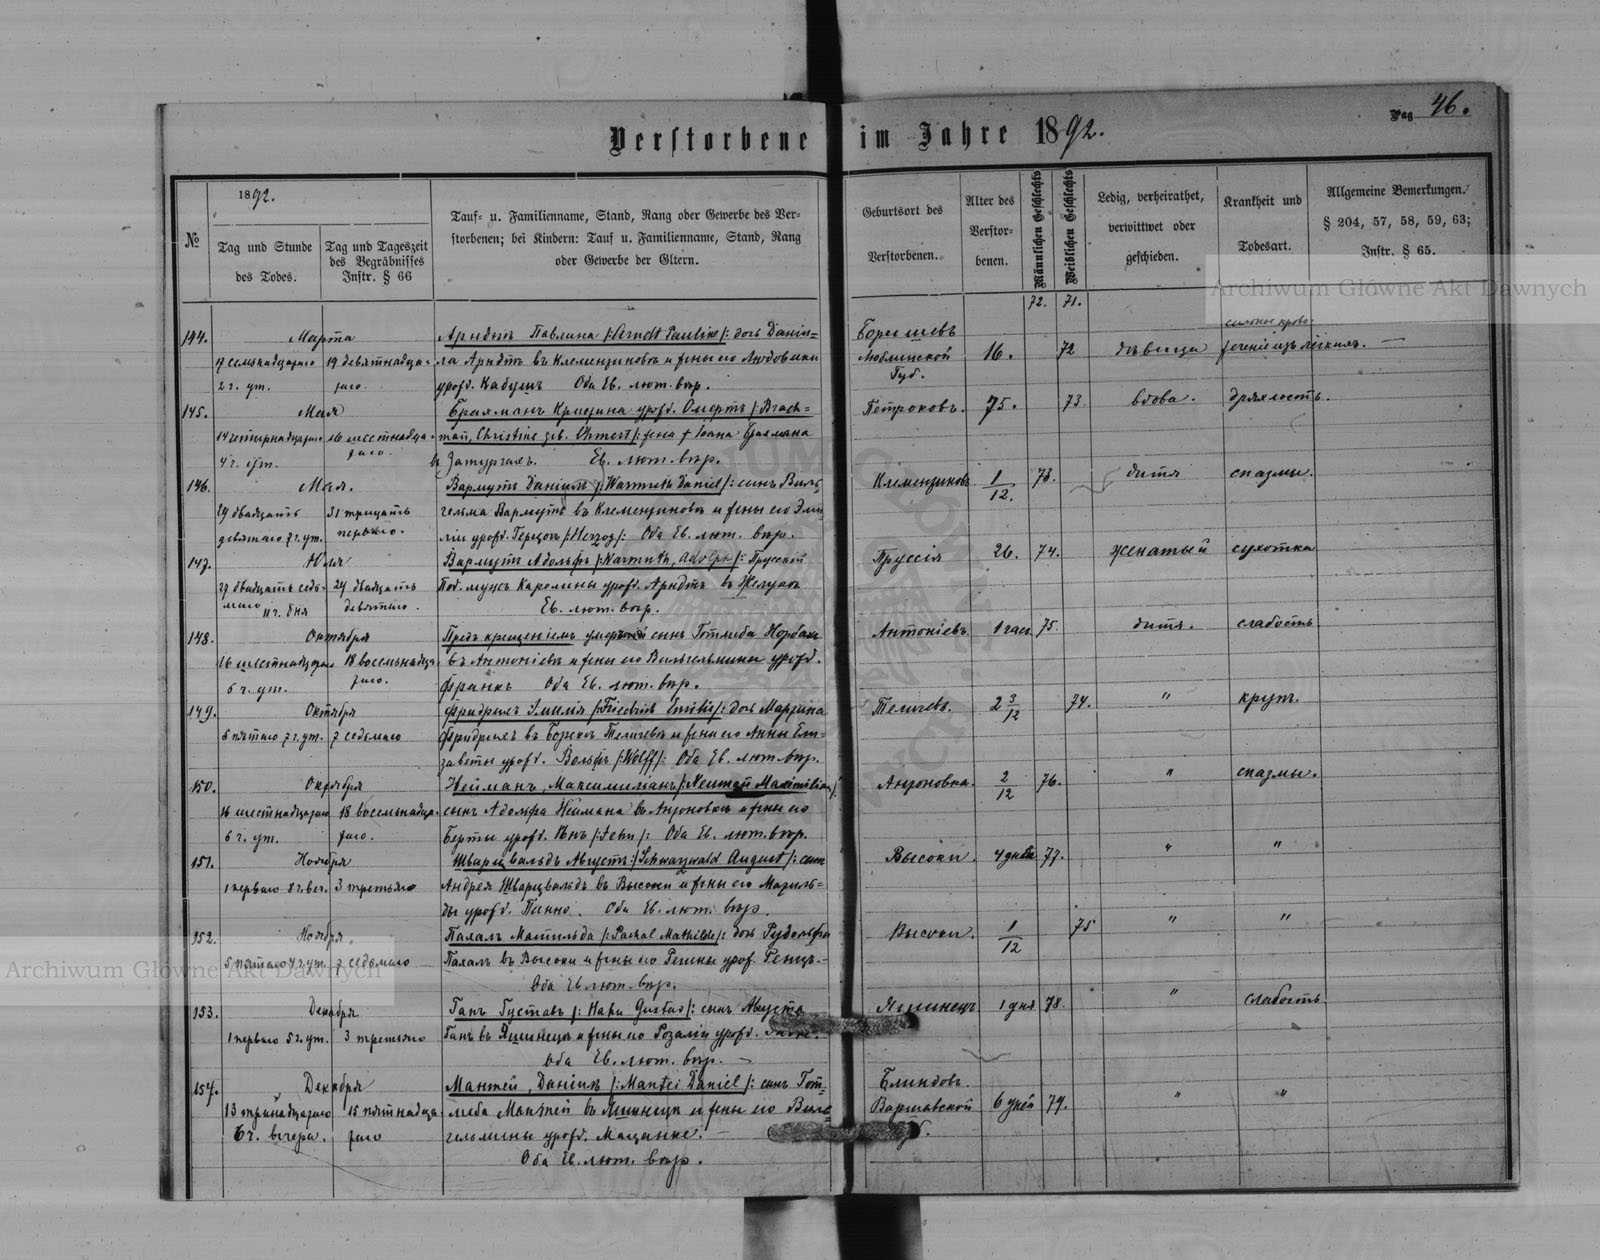 Pag 46.
Verstorbene im Jahre 1892.
№
1892.
Tag und Stunde
des Todes.
Tag und Tageszeit
des Begräbnisses
Instr. § 66
Tauf- u. Familienname, Stand, Rang oder Gewerbe des Ver-
storbenen; bei Kindern: Tauf u. Familienname, Stand, Rang
oder Gewerbe der Eltern.
Geburtsort des
Verstorbenen.
Alter des
Verstor-
benen.
Männlichen Geschlechts
Weiblichen Geschlechts
Ledig, verheirathet,
verwittwet oder
geschieden.
Krankheit und
Todesart.
Allgemeine Bemerkungen.
§ 204, 57, 58, 59, 63;
Instr. § 65.
Archiwum Główne Akt Dawnych
72. 71.
144. Марта Арндтъ Павлина /:Arndt Pauline/: дочь Данiи=
17 семьнадцатаго 19 девятнадца- ла Арндтъ въ Клементиновѣ и жены его Людовики Люблинской 16. 72 дѣвица
2 ч. ут. таго. урожд. Оба Ев. лют. вѣр. Губ.
145. Мая Брахманъ Кристина урожд. Омертъ /:Brach= Петроковъ. 75. 73. вдова. дряхлость.
14 четырнадцатаго 16 шестнадца- man, Christine geb. Ohmert/: жена † Іоана Брахмана
4 ч. ут. таго. Ев. лют. вѣр.
146. Мая. Вармутъ Данiилъ /:Warmuth Daniel/: сынъ Виль- Клементиновъ 1/12. 73. дитя спазмы.
29 двадцать 31 тридцать гельма Вармутъ въ Клементиновѣ и жены его Эми
девятаго 7 ч. ут. перваго. лiи урожд. Герцогъ /:Herzog/: Оба Ев. лют. вѣр.
147. Вармутъ Адольфъ /:Warmuth, Adolph/: Прусскiй Пруссiя 26. 74. женатый сухотка
27 двадцать седь- 29 двадцать Под. мужъ Каролины урожд. Арндтъ въ
маго 11 ч. дня девятаго. Ев. лют. вѣр.
148. Октября Предъ крещенiемъ умершiй сынъ Готлиба Антонiевъ. 1 час. 75. дитя. слабость
16 шестнадцатаго 18 восемьнадца- въ Антонiевѣ и жены его Вильгельмины урожд.
5 ч. ут. таго. Франкъ Оба Ев. лют. вѣр.
149. Октября Фридрихъ Эмилiя /:Friedrich Emilie/: дочь Мартина 2 3/12 74. " крупъ.
5 пятаго 7 ч. ут. 7 седьмаго Фридрихъ въ и жены его Анны Ели-
заветы урожд. Вольфъ /:Wolff/: Оба Ев. лют. вѣр.
150. Октября Нейманъ, Максимилiанъ /:Neuman Maximilian/: Антоновка. 2/12 76. " спазмы.
16 шестнадцатаго 18 восемьнадца- сынъ Адольфа Неймана въ Антоновкѣ и жены его
6 ч. ут. таго. Берты урожд. Iенъ /:Jehn/: Оба Ев. лют. вѣр.
151. Ноября Шварцвальдъ Августъ /:Schwarzwald August/: сынъ Высоки. 4 дней 77. " "
1 перваго 8 ч. веч. 3 третьяго Андрея Шварцвальдъ въ Высоки и жены его Матиль=
ды урожд. Панно. Оба Ев. лют. вѣр.
152. Ноября. Пахалъ Матильда /:Pachal Mathilde/: дочь Рудольфа Высоки. 1/12 75 " "
Archiwum Główne Akt Dawnych
5 пятаго 4 ч. ут. 7 седьмаго Пахалъ въ Высоки и жены его Регины урожд. Ренцъ.-
Оба Ев. лют. вѣр.
153. Декабря Ганъ Густавъ /:Hahn Gustav/: сынъ Августа 1 дня 78. " слабость
1 перваго 5 ч. ут. 3 третьяго Ганъ въ и жены его Розалiи урожд.
Оба Ев. лют. вѣр.
154. Декабря Мантей, Данiилъ /:Mantei Daniel/: сынъ Гот= Блиндовъ.
13 тринадцатаго 15 пятнадца- либа Мантей въ и жены его Виль Варшавской 6 дней 79. " "
6 ч. вечера. таго гельмины урожд. Мащинке.
Оба Ев. лют. вѣр.